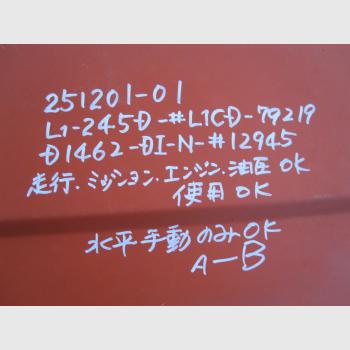 251201-01
L1-245D-#L1CD-79219
D1462-DI-N-#12945
走行.ミッション.エンジン.油圧 OK
使用 OK
水平手動のみOK
A-B